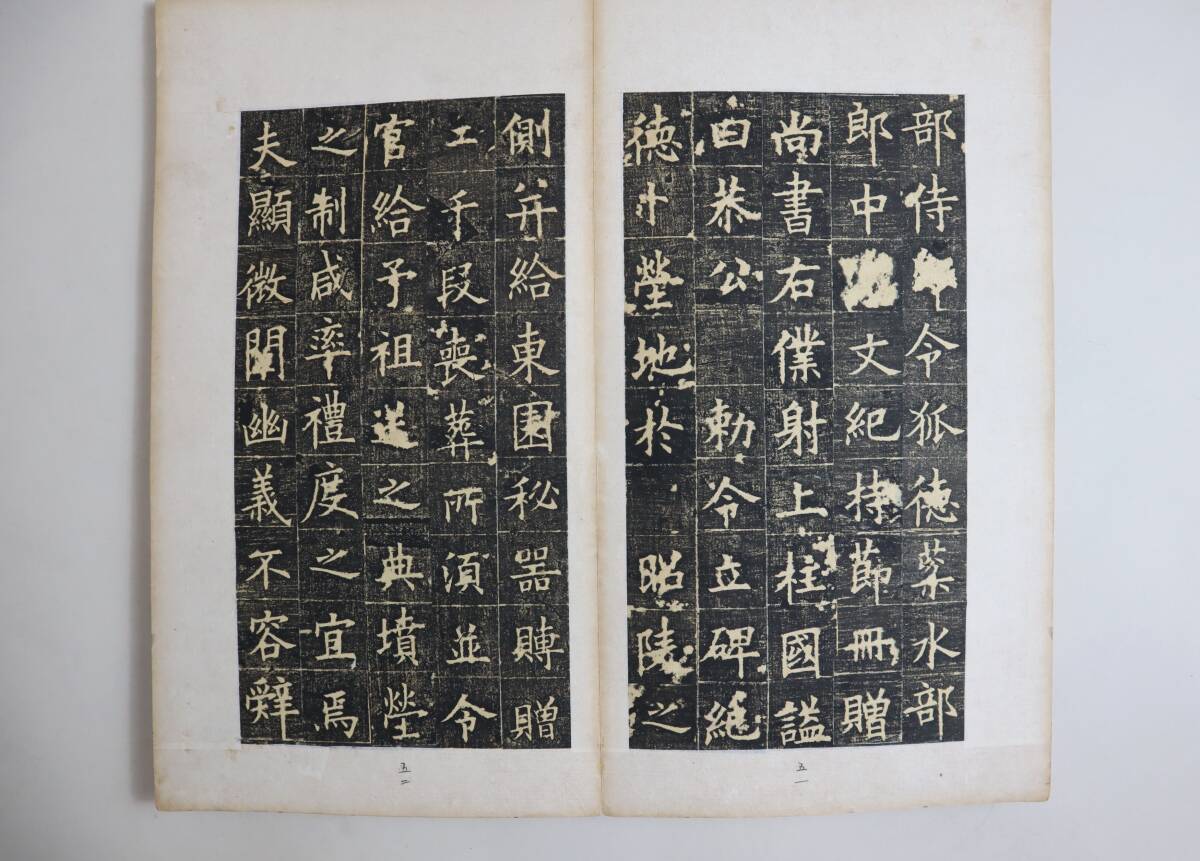 部侍令狐德棻水部
郎中文紀持節冊贈
尚書右僕射上柱國諡
曰恭公 勅令立碑紀
德卜塋地於 昭陵之
五一
側并給東園秘器賻贈
工手段喪葬所須並令
官給予祖送之典墳塋
之制咸率禮度之宜焉
夫顯微闡幽義不容辭
五二